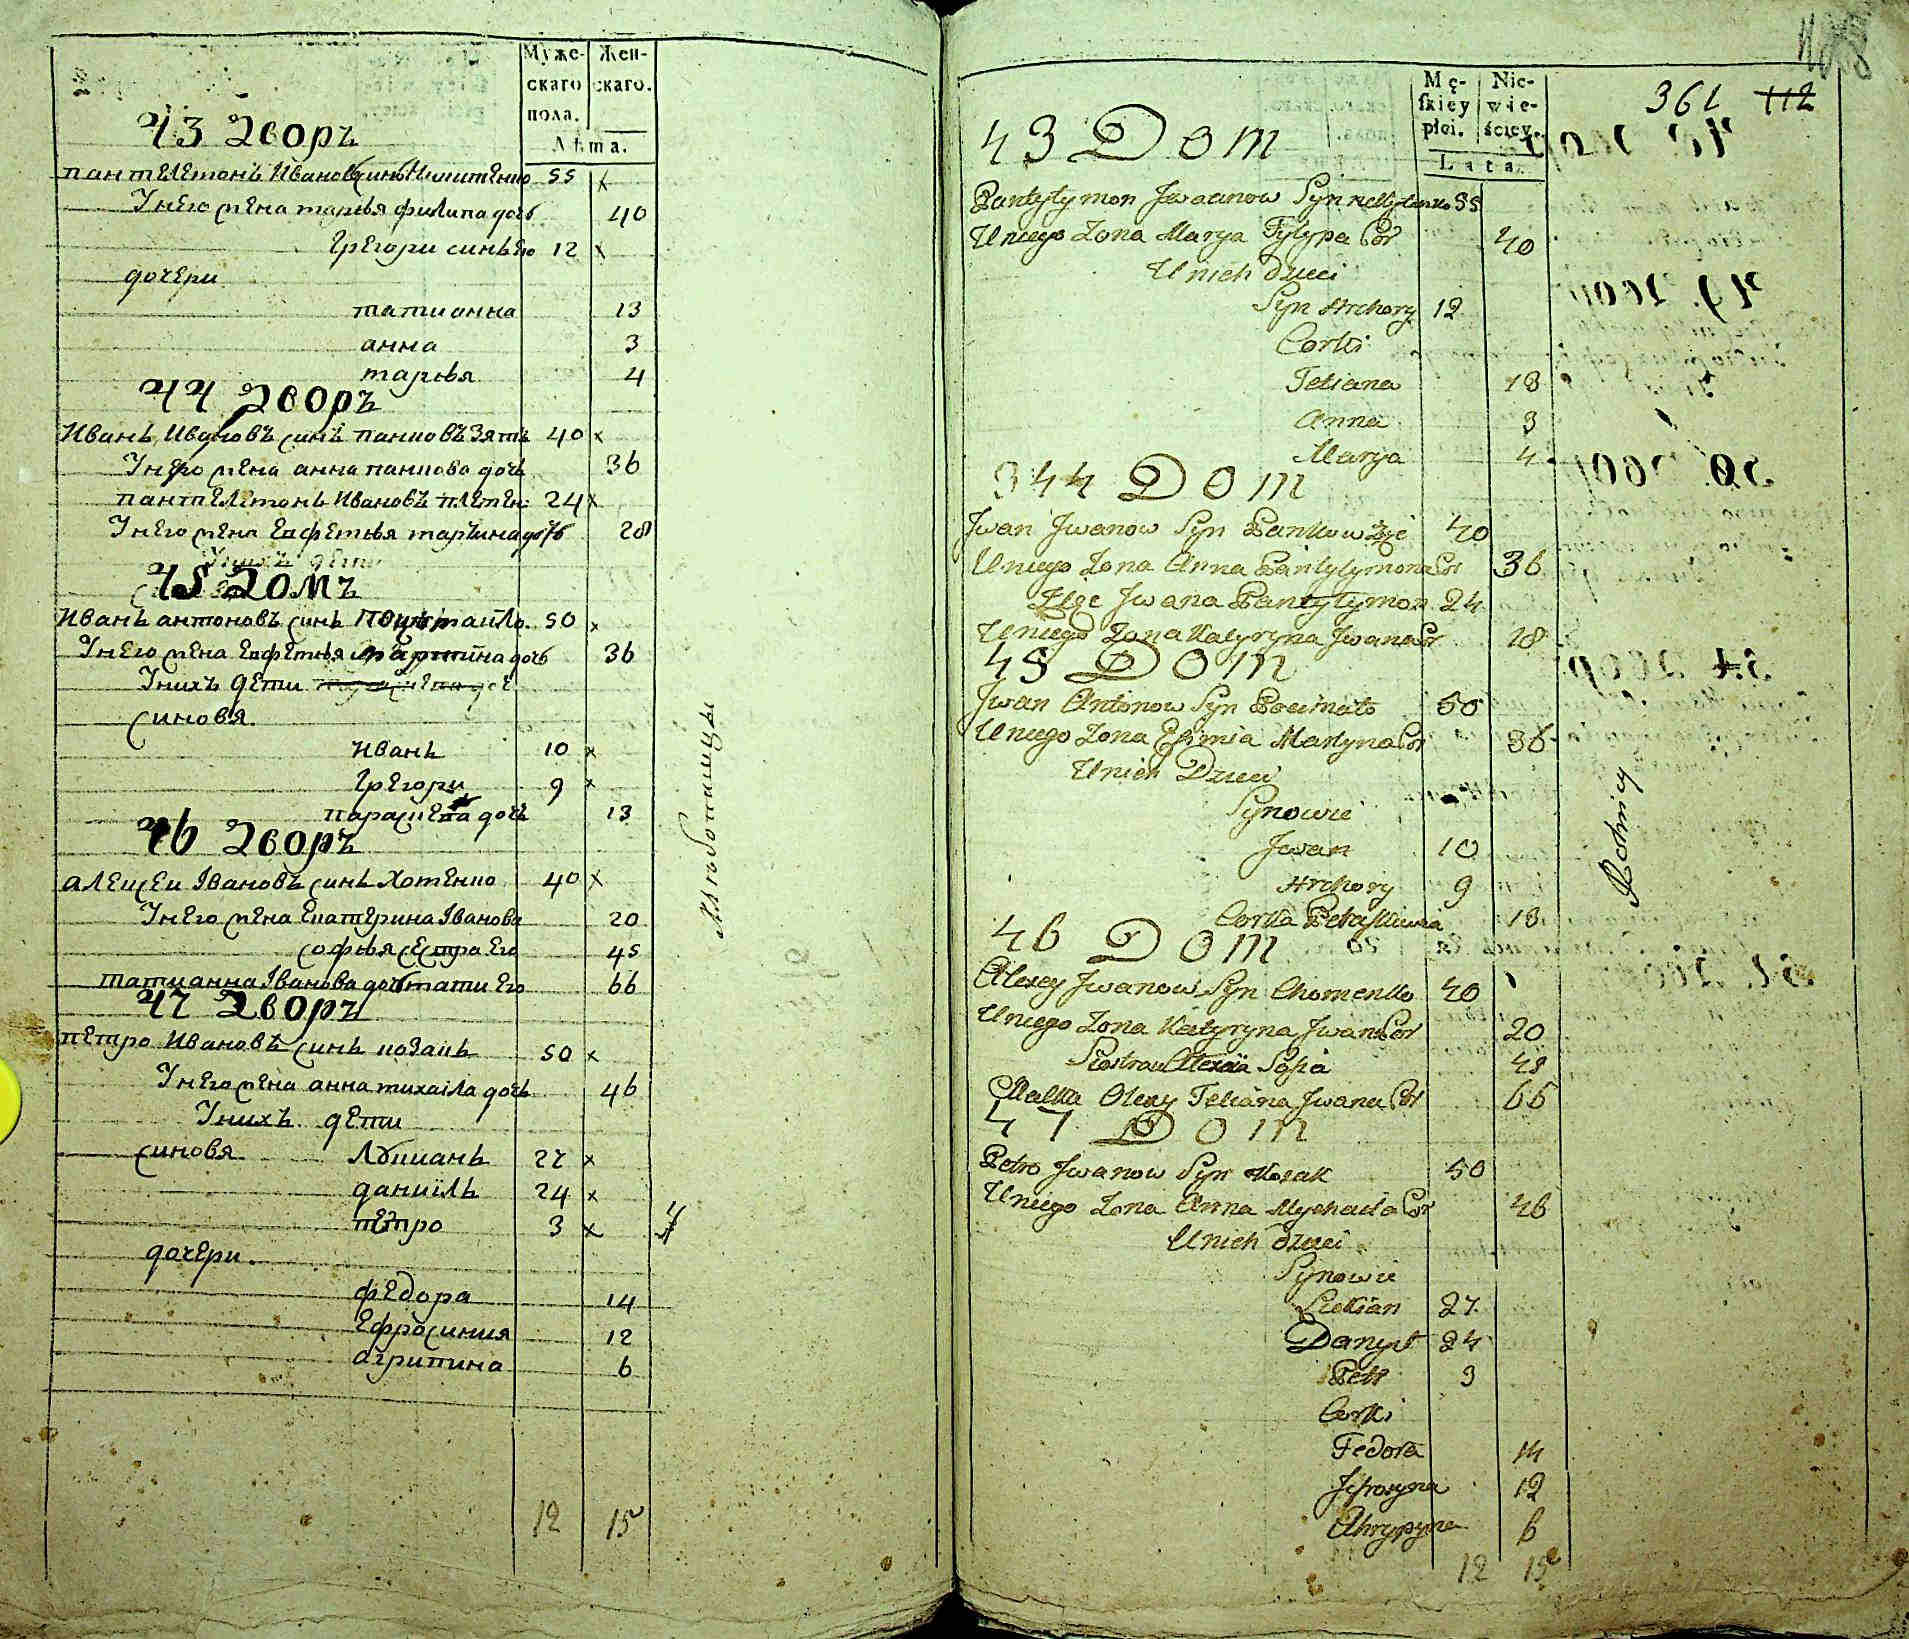 Муже-
скаго
пола.
Жен-
скаго.
Лѣта.
43 Дворъ
пантелемонъ Ивановъ синъ 55 x
Унего жена марья филипа дочь 40
Грегори синъ Его 12 x
дочери
татианна 13
анна 3
марья 4
44 Дворъ
Иванъ Ивановъ синъ панковъ Зять 40 x
Унего жена анна панкова дочь 36
пантелемонъ Ивановъ 24 x
Унего жена Евфемья мартина дочь 28
Унихъ дети
45 Домъ
Иванъ антоновъ синъ 50 x
Унего жена Евфемья мартина дочь 36
Унихъ дети
синовя
иванъ 10 x
Грегори 9 x
дочь 13
46 Дворъ
алексеи Ивановъ синъ Хоменко 40 x
Унего жена Екатерина Іванова 20
софья сестра Его 45
татианна Іванова дочь мати Его 66
47 Дворъ
петро Ивановъ синъ козакъ 50 x
Унего жена анна михаила дочь 46
Унихъ дети
синовя Лукианъ 27 x
даниилъ 24 x
петро 3 x
дочери
федора 14
Ефросиния 12
агрипина 6
12 15
Хлѣбопашцы
Mę-
skiey
płci.
Nie-
wie-
ściey.
Lata.
361 112
43 Dom
Pantylymon Jwanow Syn 55
Uniego Zona Marya Fylypa Cor 40
Unich dzieci
Syn Hrehory 12
Corki
Tetiana 13
Anna 3
Marya 4
44 Dom
Jwan Jwanow Syn Pankow Zięć 40
Uniego Zona Anna Pantylymona Cor 36
Zięć Jwana Pantylymon 24
Uniego Zona Katyryna Jwana Cor 18
45 Dom
Jwan Antonow Syn 50
Uniego Zona Efimia Martyna Cor 36
Unich Dzieci
Synowie
Jwan 10
Hrehory 9
Corka Petraskiewia 13
46 Dom
Alexey Jwanow Syn Chomenko 40
Uniego Zona Katyryna Jwana Cor 20
Siostra Alexeia Sofia 45
Matka Olexy Tetiana Jwana Cor 66
47 Dom
Petro Jwanow Syn Kozak 50
Uniego Zona Anna Mychaila Cor 46
Unich dzieci
Synowie
Lukian 27
Danyło 24
Petr 3
Corki
Fedora 14
Jefrosyna 12
Ahrypyna 6
12 15
Rolnicy